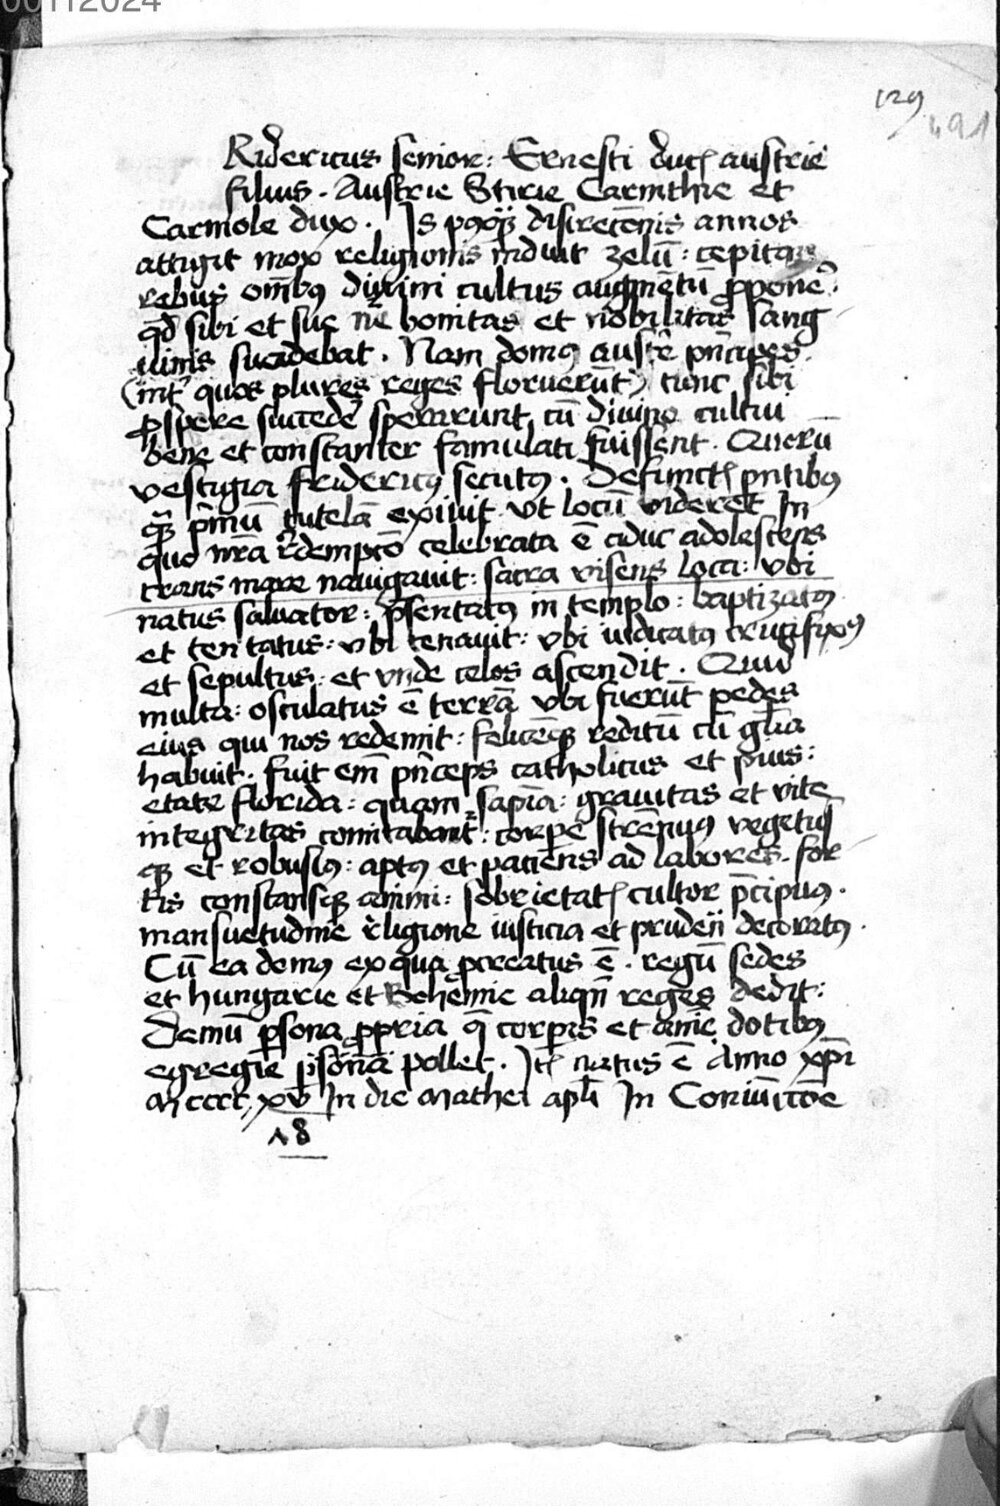 00112024
129
491
Ridericus senior: Ernesti duc͛ austrie
filius. Austrie Stirie Carinthie et
Carniole dux. Is pꝰqꝫ discrecōnis annos
attigit mox religionis induit zelū: cepitqꝫ
rebus omībꝰ divini cultus augmētū ꝓponẽ:
qd̄ sibi et sue nr̄e bonitas et nobilitas sang
uinis suadebat. Nam domꝰ austr̄e prīcipes
(int͛ quos plures reges floruerūt) tunc sibi
ꝓspere succedẽ sperarunt, cū divino cultui
bene et constanter famulati fuissent. Quorū
vestigia fridericꝰ secutꝰ. Defunct͛ pntibꝰ
qꝫ pͥmū tutelā exiuit vt locū videret In
quo nr̄a rͤdempcō celebrata ē aduc adolescens
trans mare navigavit: sacra visens loca: vbi
natus salvator: pͤsentatꝰ in templo: baptizatꝰ
et tentatus: vbi cenavit: vbi iudicatꝰ crucifixꝰ
et sepultus: et vnde celos ascendit. Quid
multa: osculatus ē terrā vbi fuerūt pedes
eius qui nos redemit: felicēqꝫ reditū cū gl̄ia
habuit. fuit em̄ prīceps catholicus et pius:
etate florida: quam sapīa: gravitas et vite
integritas comitabant͛: corpe strēnuꝰ vegetꝰ
qꝫ et robustꝰ: aptꝰ et paciens ad labores. for
tis constansqꝫ animi: sobrietat͛ cultor pͤcipuꝰ.
mansuetudine rͤligione iusticia et prudeñ decoratꝰ.
Cū ea domꝰ ex qua ꝓcreatus ē. regū sedes
et hungarie et Bohemie aliqn̄ reges dedit:
Demū ꝑsona ꝓpria q̄ corpis et animi dotibꝰ
egregie pollet. Itē natus ē Anno xp̄i
Mcccc xv In die Mathei apl̄i In Coniūctōe
18